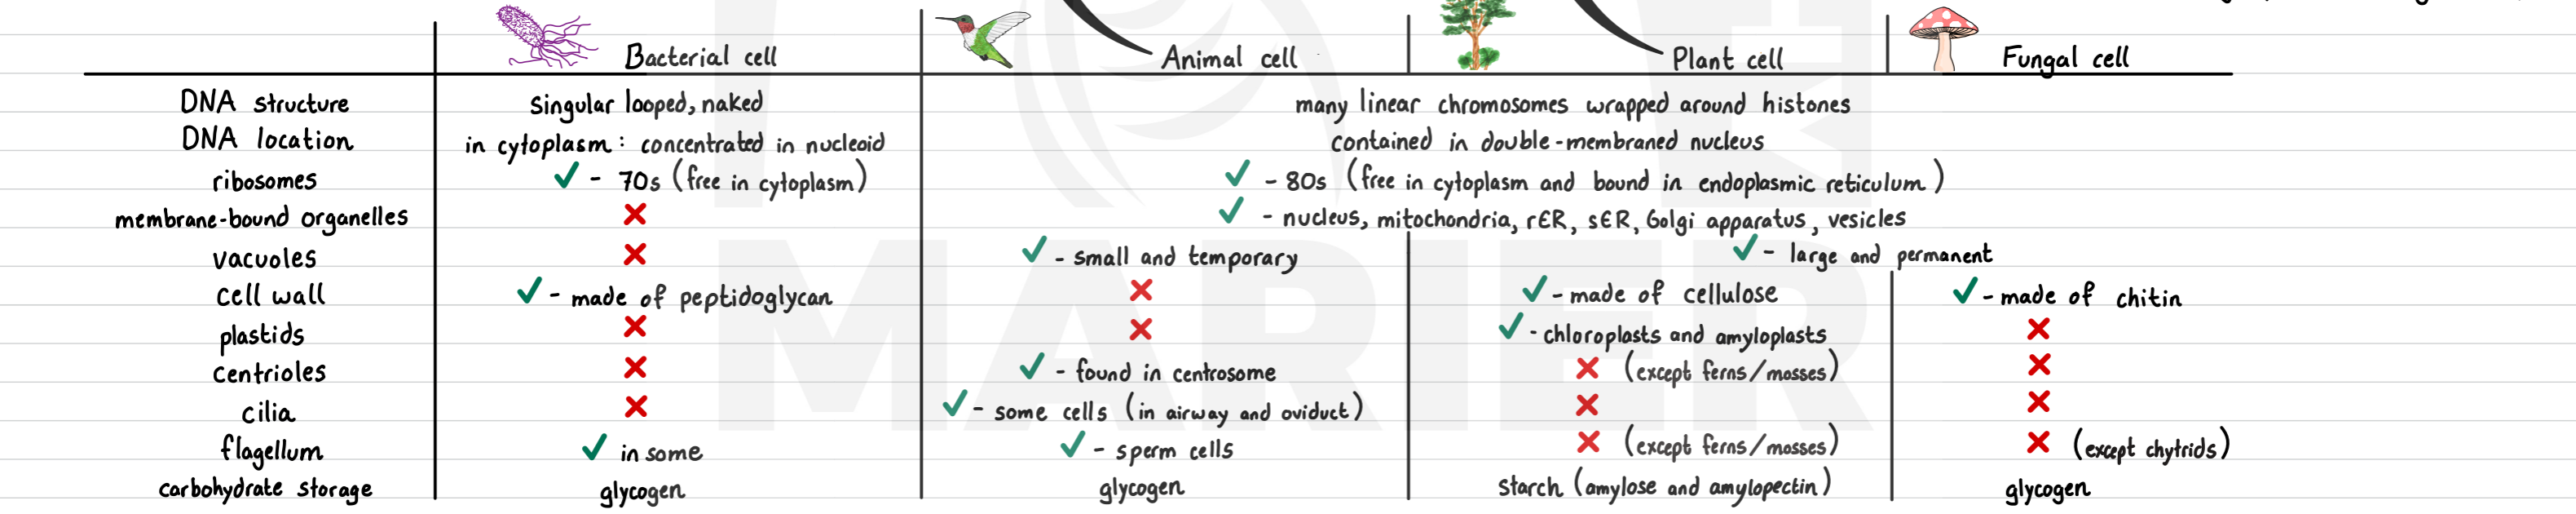 Bacterial cell Animal cell Plant cell Fungal cell
DNA structure singular looped, naked many linear chromosomes wrapped around histones
DNA location in cytoplasm: concentrated in nucleoid contained in double-membraned nucleus
ribosomes ✓ - 70s (free in cytoplasm) ✓ - 80s (free in cytoplasm and bound in endoplasmic reticulum)
membrane-bound organelles ✗ ✓ - nucleus, mitochondria, rER, sER, Golgi apparatus, vesicles
vacuoles ✗ ✓ - small and temporary ✓ - large and permanent
cell wall ✓ - made of peptidoglycan ✗ ✓ - made of cellulose ✓ - made of chitin
plastids ✗ ✗ ✓ - chloroplasts and amyloplasts ✗
centrioles ✗ ✓ - found in centrosome ✗ (except ferns/mosses) ✗
cilia ✗ ✓ - some cells (in airway and oviduct) ✗ ✗
flagellum ✓ in some ✓ - sperm cells ✗ (except ferns/mosses) ✗ (except chytrids)
carbohydrate storage glycogen glycogen starch (amylose and amylopectin) glycogen
MARIER